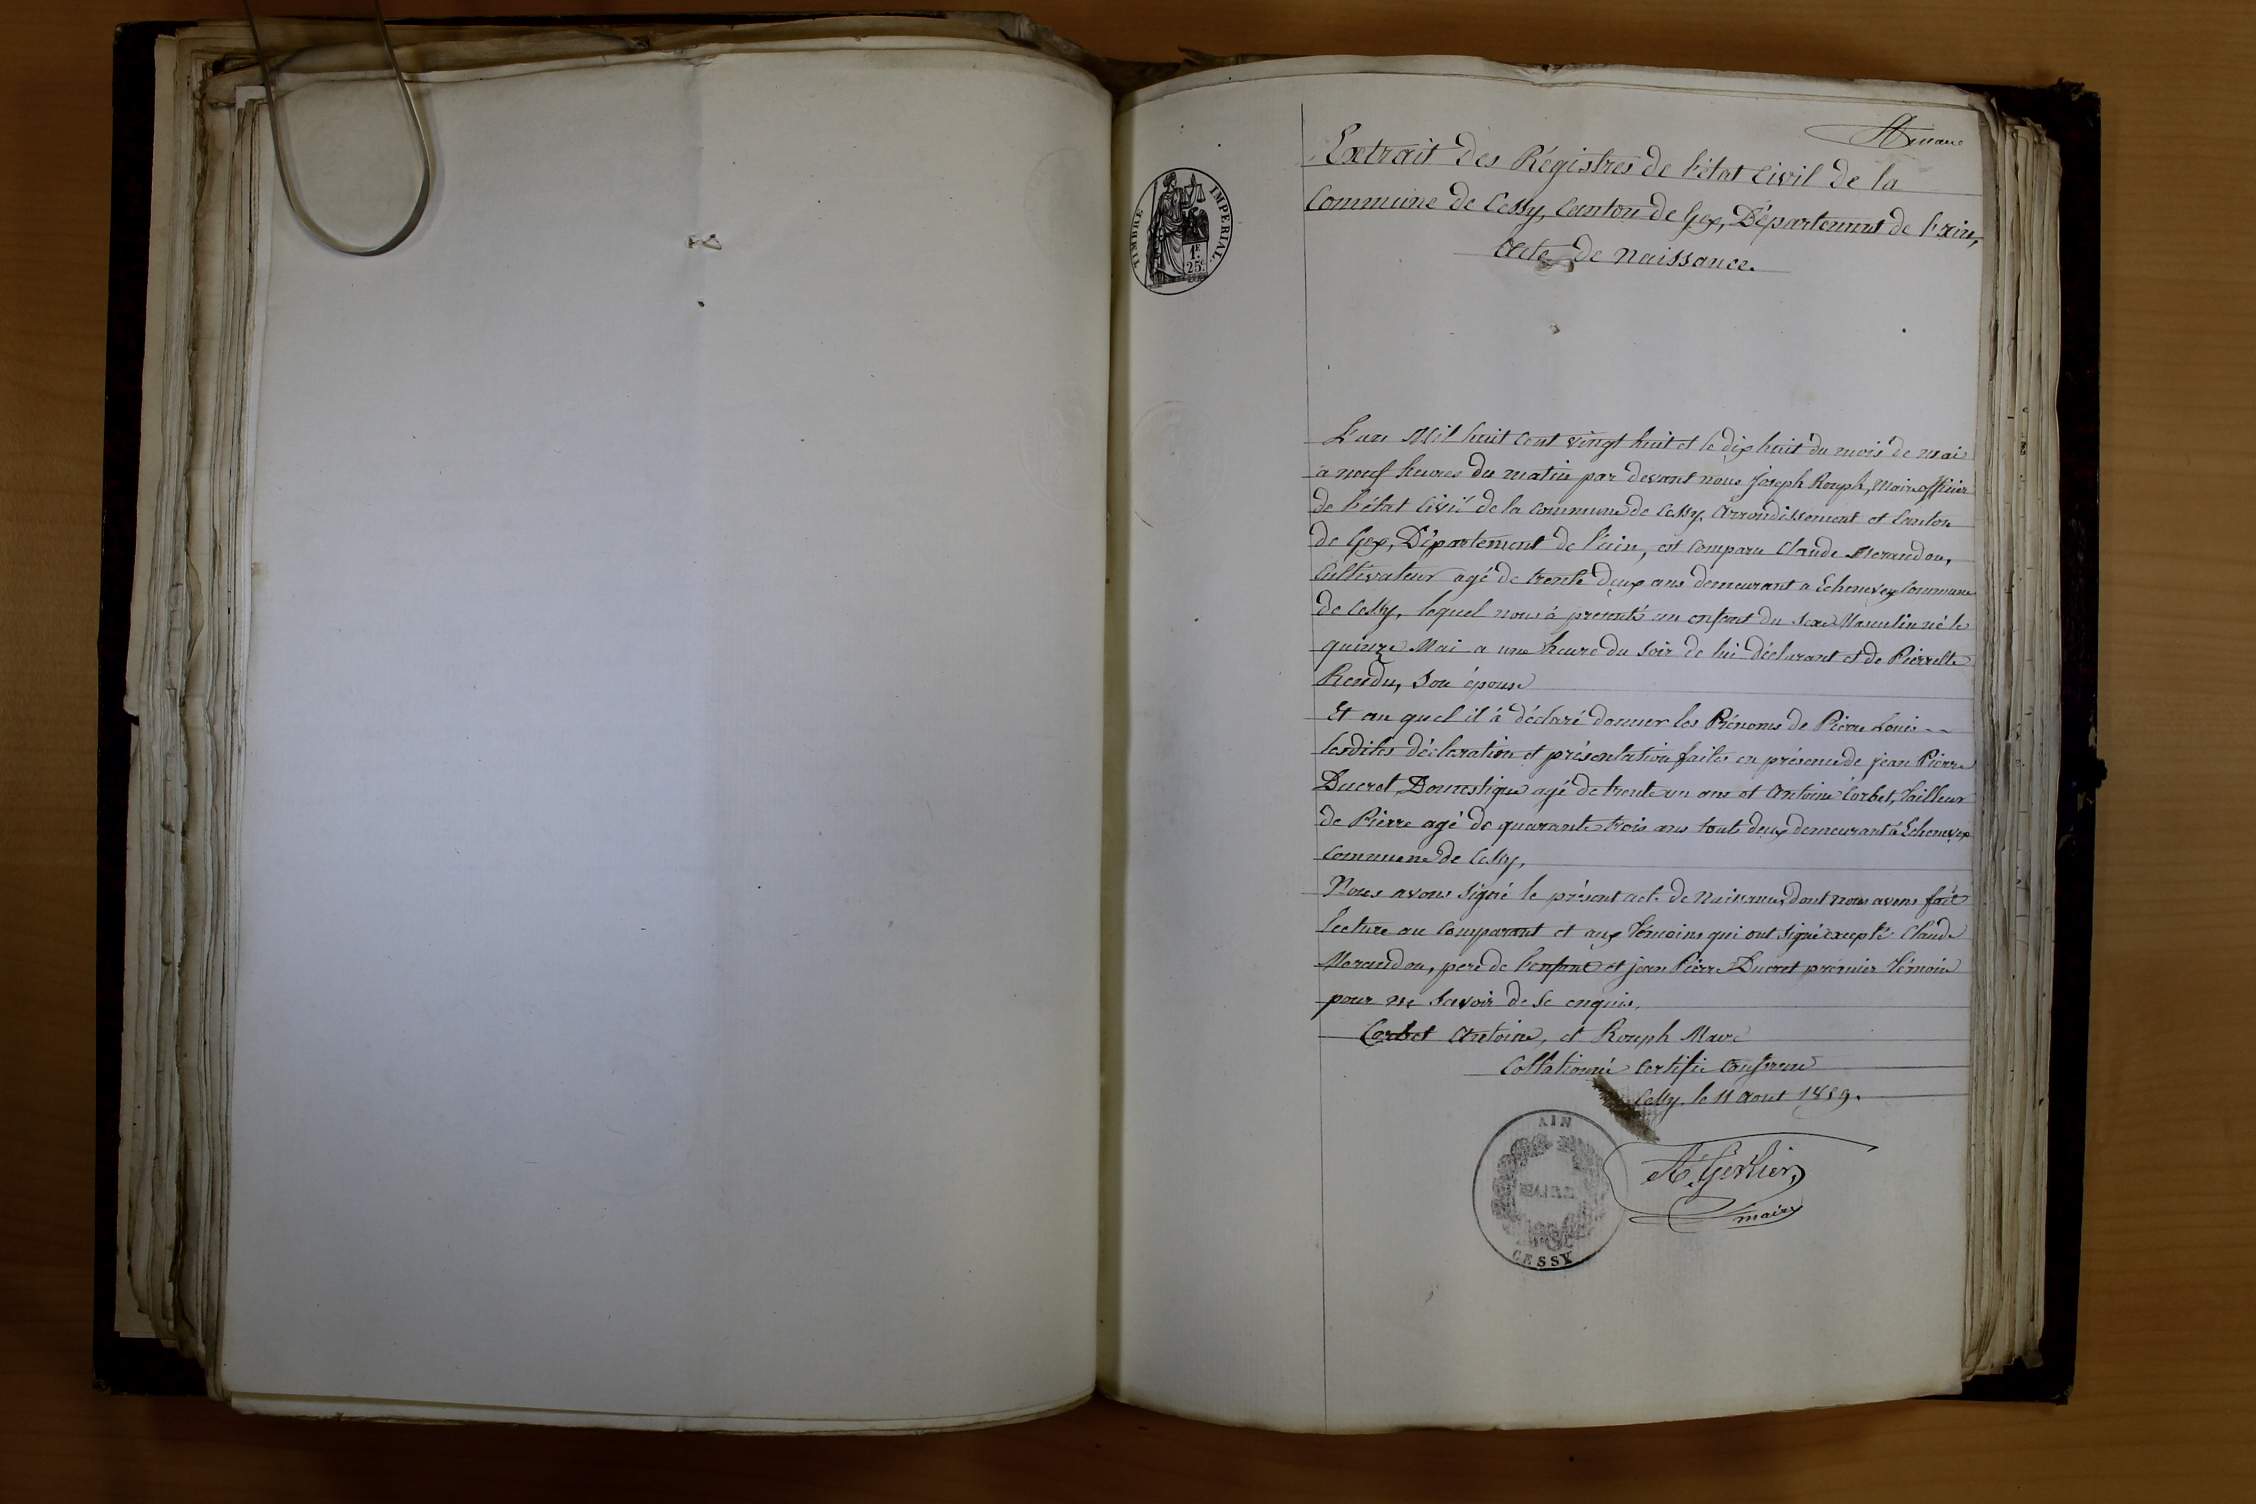 Extrait des Régistres de l'état civil de la
Commune de Cessy, Canton de Gex, Département de l'ain,
Acte de Naissance.
TIMBRE IMPERIAL
1F.
25c
L'an Mil huit cent vingt huit et le dix huit du mois de mai
a neuf heures du matin par devant nous Joseph Rouph, Maire officier
de l'état civil de la commune de Cessy, Arrondissement et Canton
de Gex, Département de l'ain, est comparu Claude Morandon,
Cultivateur agé de trente deux ans demeurant a Echenevex Commune
de Cessy, lequel nous à presenté un enfant du sexe Masculin né le
quinze Mai a une heure du soir de lui déclarant et de Pierrette
Rendu, son épouse
Et au quel il à déclaré donner les Prénoms de Pierre Louis
lesdites déclaration et présentation faites en présence de jean Pierre
Ducret, Domestique agé de trente un ans et Antoine Corbet, Tailleur
de Pierre agé de quarante trois ans touts deux demeurant à Echenevex
commune de Cessy,
Nous avons signé le présent acte de Naissance, dont nous avons fait
lecture au Comparant et aux Témoins qui ont signé excepté Claude
Morandon, pere de l'enfant et jean Pierre Ducret premier Témoin
pour ne savoir de ce enquis.
Corbet Antoine, et Rouph Maire
Collationné certifié conforme
Cessy le 11 Aout 1859.
AIN
MAIRIE
CESSY
A. Gerlier
maire